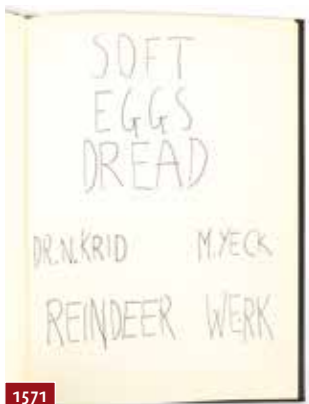 SOFT
EGGS
DREAD
DR.N.KRID M.YECK
REINDEER WERK
1571